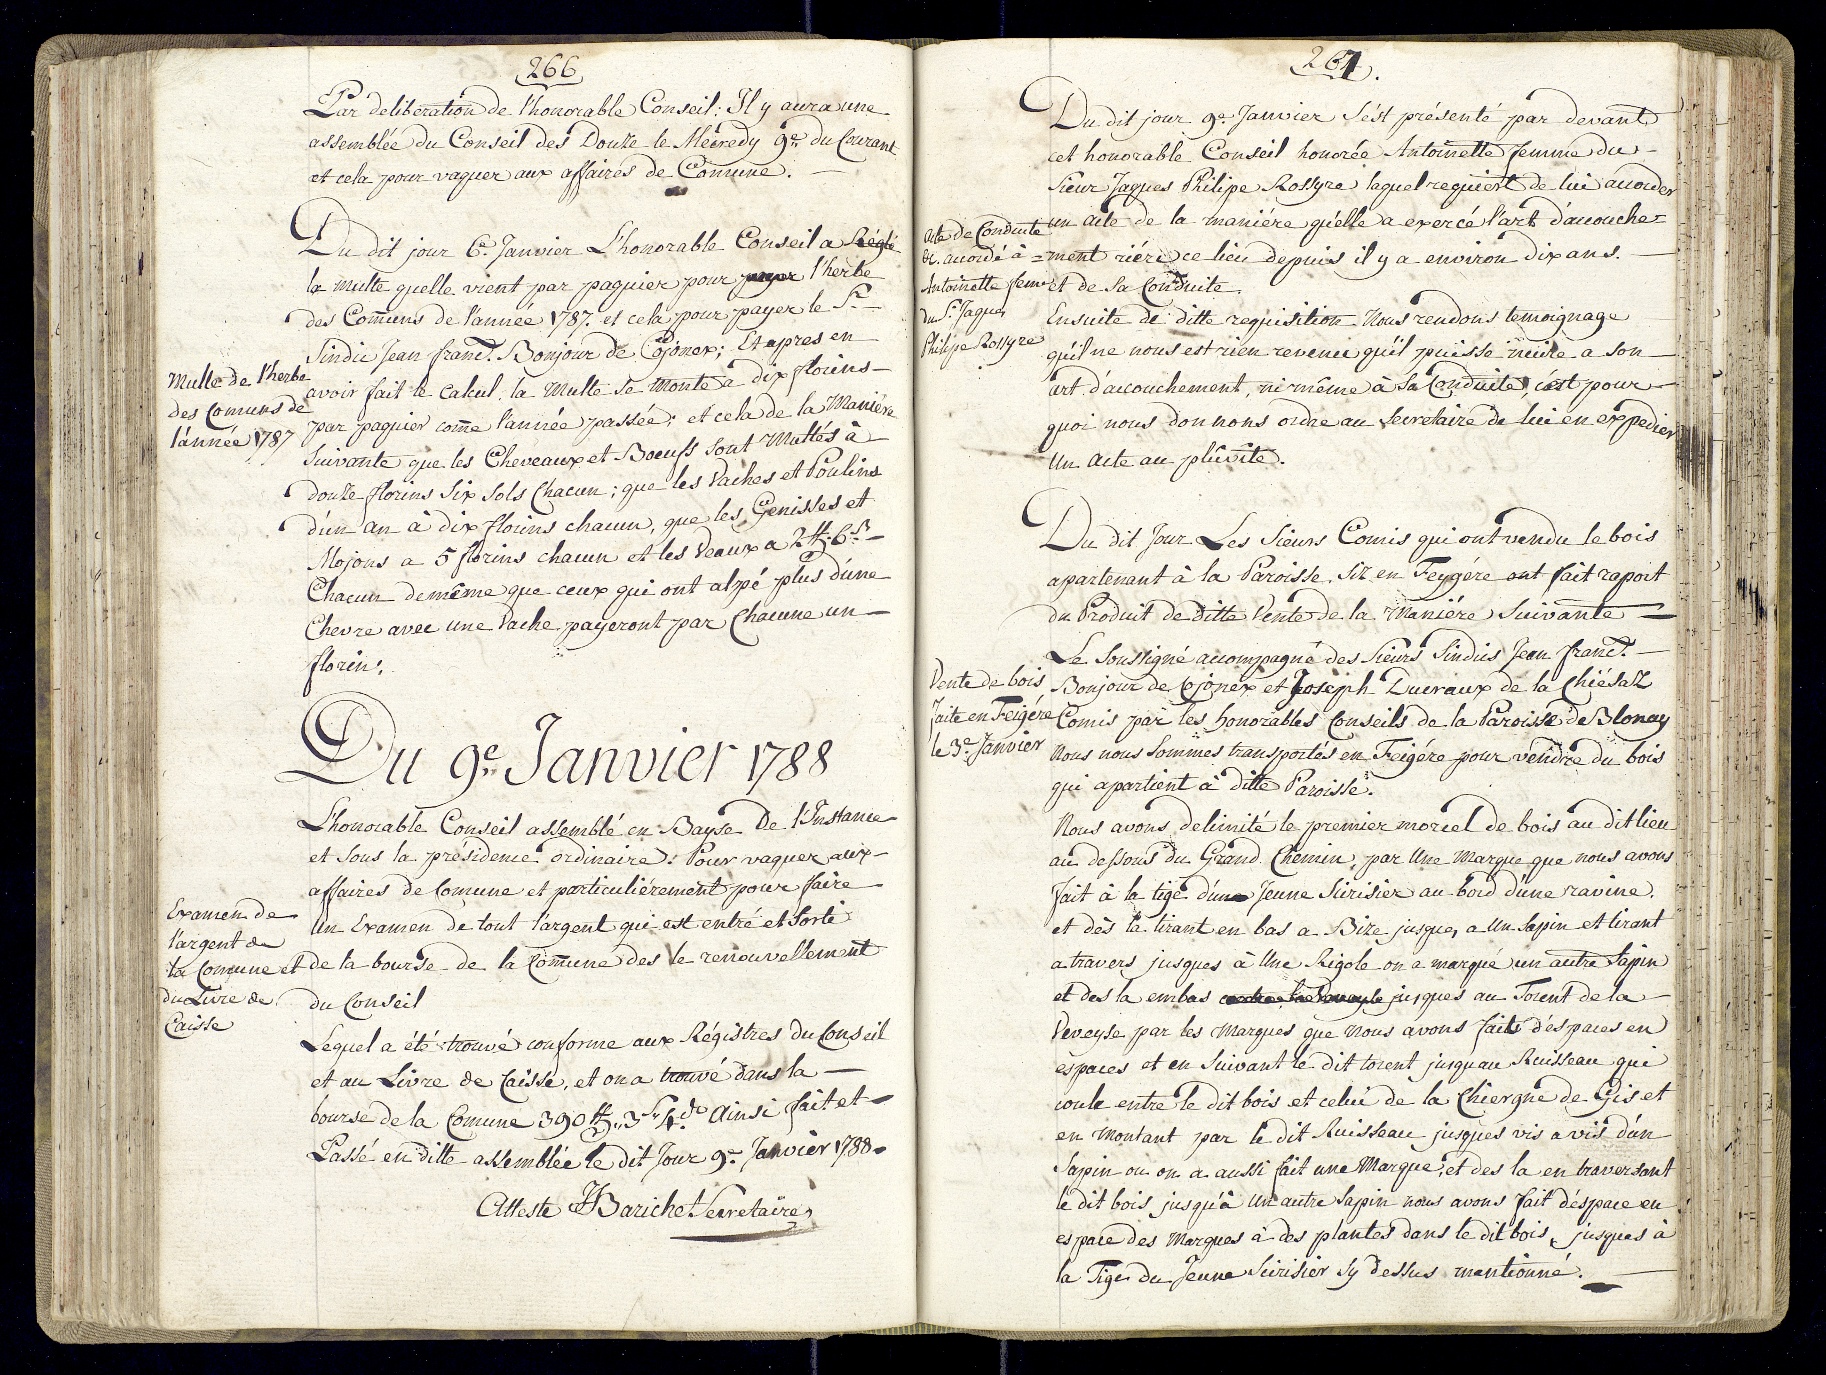 266
Par deliberation de l'honorable Conseil; Il y aura une
assemblée du Conseil des Douze le Mécredy 9e. du Courant
et cela pour vaquer aux affaires de Comune. —
Du dit jour 6e. Janvier L'honorable Conseil a Réglé
la multe quelle vient par paquier pour payer l'herbe
des Comuns de l'année 1787. et cela pour payer le Sr. —
Sindic Jean franç. Bonjour de Cojonex; Et apres en
Multe de l'herbe
des Comuns de
l'année 1787
avoir fait le Calcul, la Multe se Monte a dix florins —
par paquier come l'année passée; et cela de la Maniére
Suivante que les Cheveaux et Boeufs sont Multés à —
douze florins Six Sols Chacun; que les Vaches et Poulins
d'un an à dix florins chacun, que les Genisses et
Mojons a 5 florins chacun et les Veaux a 2 ff: 6 s —
Chacun demême que ceux qui ont alpé plus d'une
Chevre avec une Vache payeront par Chacune un —
florin.
Du 9e. Janvier 1788
L'honorable Conseil assemblé en Bayse De l'Instance
et sous la présidence ordinaire: Pour vaquer aux —
affaires de Comune et particuliérement pour faire
Examen de
l'argent de
la Comune et
du Livre de
Caisse
Un Examen de tout l'argent qui est entré et Sorti
de la bourse de la Comune des le renouvellement
du Conseil
Lequel a été trouvé conforme aux Régistres du Conseil
et au Livre de Caisse, et on a trouvé dans la —
bourse de la Comune 390 ff,, 3 s,, 4 d. Ainsi fait et —
Passé en ditte assemblée le dit Jour 9e. Janvier 1788.
Atteste Barichet Secretaire
267.
Du dit jour 9e. Janvier S'ést présenté par devant
cet honorable Conseil honorée Antoinette femme du —
Sieur Jaques Philipe Rossyre laquel requiert de lui acorder
Acte de Conduite
&c. acordé à
Antoinette feme
du Sr. Jaques
Philipe Rossyre
un acte de la maniére qu'élle a exercé l'art d'acouche=
=ment riére ce lieu depuis il y a environ dix ans. —
et de sa Conduite.
Ensuite de ditte requisition Nous rendons temoignage
qu'il ne nous est rien revenu qu'il puisse nuire a son —
art d'acouchement, ni même à sa Conduite, c'ést pour —
quoi nous donnons ordre au Secretaire de lui en expedier
Un Acte au plûvite.
Du dit Jour Les Sieurs Comis qui ont vendu le bois
apartenant à la Paroisse. Siz en Feygére ont fait raport
du Produit de ditte Vente de la Maniére Suivante —
Le Soussigné acompagné des Sieurs Sindics Jean franç. —
Vente de bois
faite en Feigére
le 3e. Janvier
Bonjour de Cojonex et Joseph Ducraux de la Chiésaz
Comis par les honorables Conseils de la Paroisse de Blonay
Nous nous Sommes transportés en Feigére pour vendre du bois
qui apartient à ditte Paroisse.
Nous avons delimité le premier morcel de bois au dit lieu
au dessous du Grand Chemin, par Une Marque que nous avons
fait à la tige d'une Jeune Sirisier au bord d'une ravine.
et dès la tirant en bas a Bize jusques a Un Sapin et tirant
a travers jusques à Une Rigole on a marqué un autre Sapin
et des la embas jusques au Torent de la —
Veveyse par les Marques que Nous avons faits d'éspaces en
éspaces et en Suivant le dit torent jusqu'au Ruisseau qui
coule entre le dit bois et celui de la Chiergne de Gis et
en Montant par le dit Ruisseau jusques vis a vis d'un
Sapin ou on a aussi fait une Marque, et des la en traversant
le dit bois jusqu'à Un autre Sapin nous avons fait d'éspace en
espace des Marques à des plantes dans le dit bois, jusques à
la Tige du Jeune Sirisier sy dessus mentionné. —